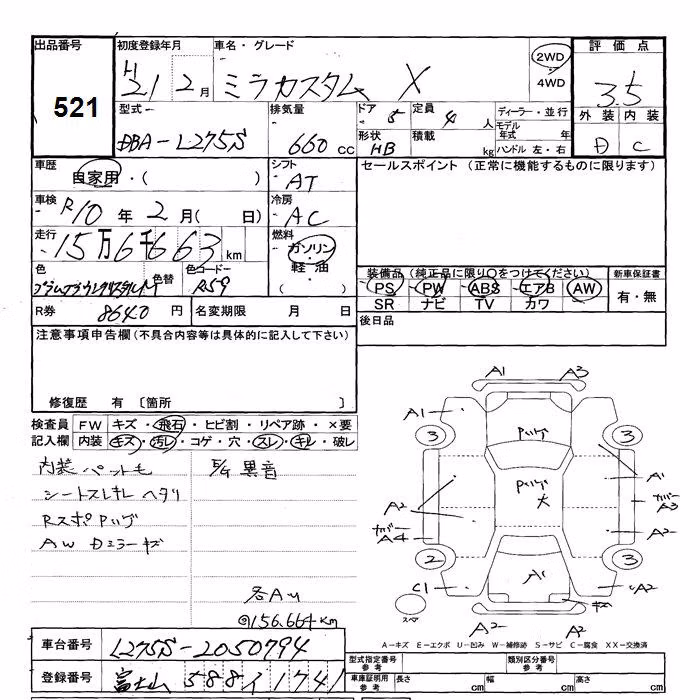 出品番号
521
初度登録年月
H21 2月
車名・グレード
ミラカスタム X
2WD
4WD
評価点
3.5
外装 内装
D C
型式
DBA-L275S
排気量
660 cc
ドア 5
定員 4 人
形状 HB
積載 kg
ディーラー・並行
モデル年式 年
ハンドル 左・右
車歴
自家用・( )
シフト
AT
車検
R10年2月( 日)
冷房
AC
走行
15万6千663 km
燃料
ガソリン・
軽油・
( )
色
色替
色コード
R59
R券 8640 円
名変期限 月 日
セールスポイント (正常に機能するものに限ります)
装備品 (純正品に限り○をつけてください)
PS・PW・ABS・エアB・AW
SR ナビ TV カワ
新車保証書
有・無
後日品
注意事項申告欄(不具合内容等は具体的に記入して下さい)
修復歴 有 〔箇所
検査員記入欄
FW キズ・飛石・ヒビ割・リペア跡・×要
内装 キズ・汚レ・コゲ・穴・スレ・キレ・破レ
シートスレキレ ヘタリ
AW Dミラーキズ
異音
各AU
156.664Km
A1 A3
A1
3 3
2 3
A2
A4
A1
A3
A2
C1
A1
A2
A2 A2
キズ
スペア
A-キズ E-エクボ U-凹み W-補修跡 S-サビ C-腐食 XX-交換済
車台番号 L275S-2050794
登録番号 富士山 588 イ 1741
型式指定番号 参考
類別区分番号 参考
車庫証明用 参考
長さ cm
幅 cm
高さ cm